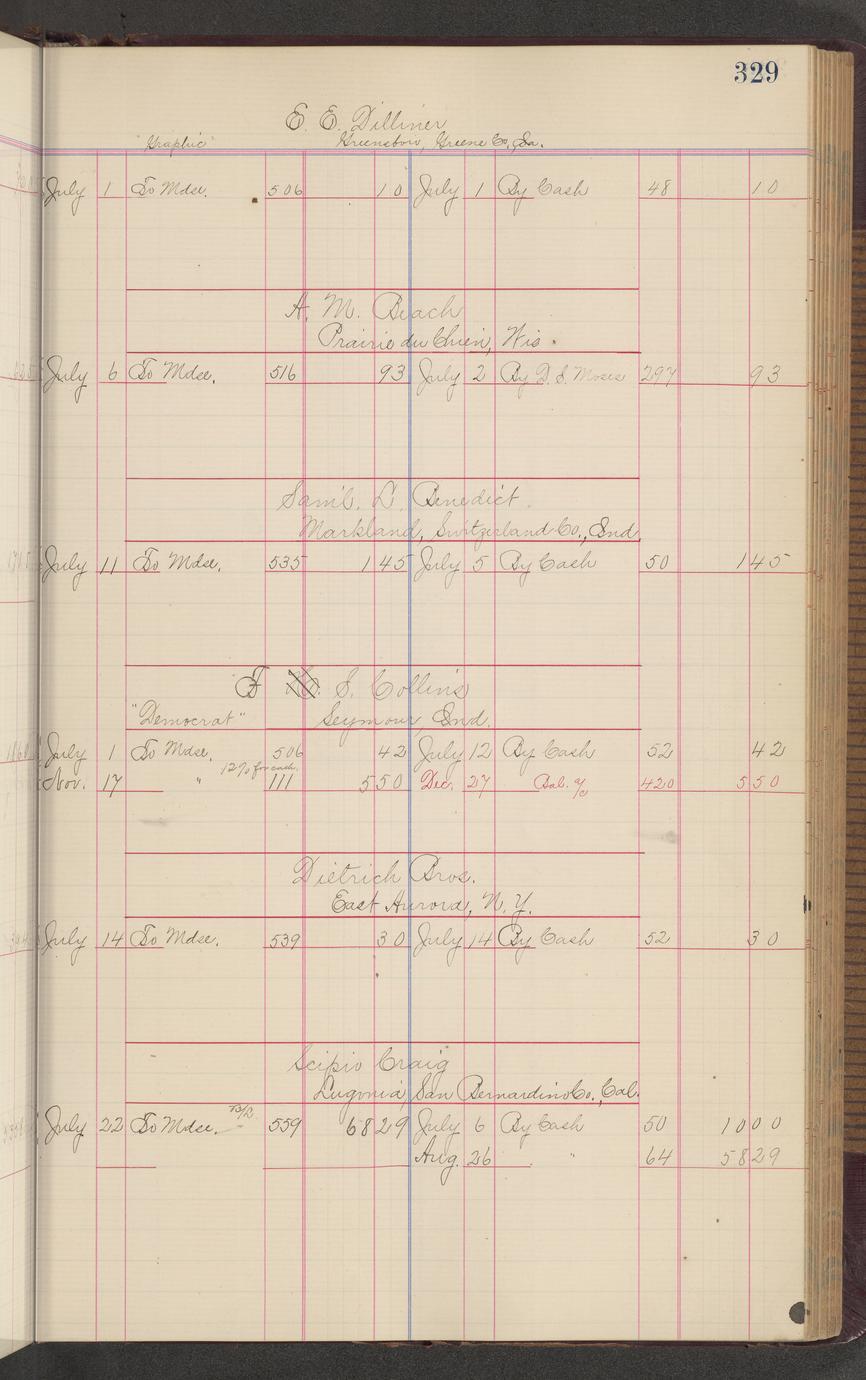 329
E. E. Dilliner
"Graphic" Greensboro, Greene Co., Ga.
July 1 To Mdse. 506 10 July 1 By Cash 48 10
A. M. Beach
Prairie du Chien, Wis.
July 6 To Mdse. 516 93 July 2 By D. S. Moses 297 93
Sam'l. L. Benedict
Markland, Switzerland Co., Ind.
July 11 To Mdse. 535 1 45 July 5 By Cash 50 1 45
F S. Collins
"Democrat" Seymour, Ind.
July 1 To Mdse. 506 42 July 12 By Cash 52 42
12% for cash.
Nov. 17 " 111 5 50 Dec. 27 Bal. a/c 420 5 50
Dietrich Bros.
East Aurora, N. Y.
July 14 To Mdse. 539 30 July 14 By Cash 52 30
Scipio Craig
Lugonia, San Bernardino Co., Cal.
July 22 To Mdse. B/L 559 68 29 July 6 By Cash 50 10 00
Aug. 26 " 64 58 29